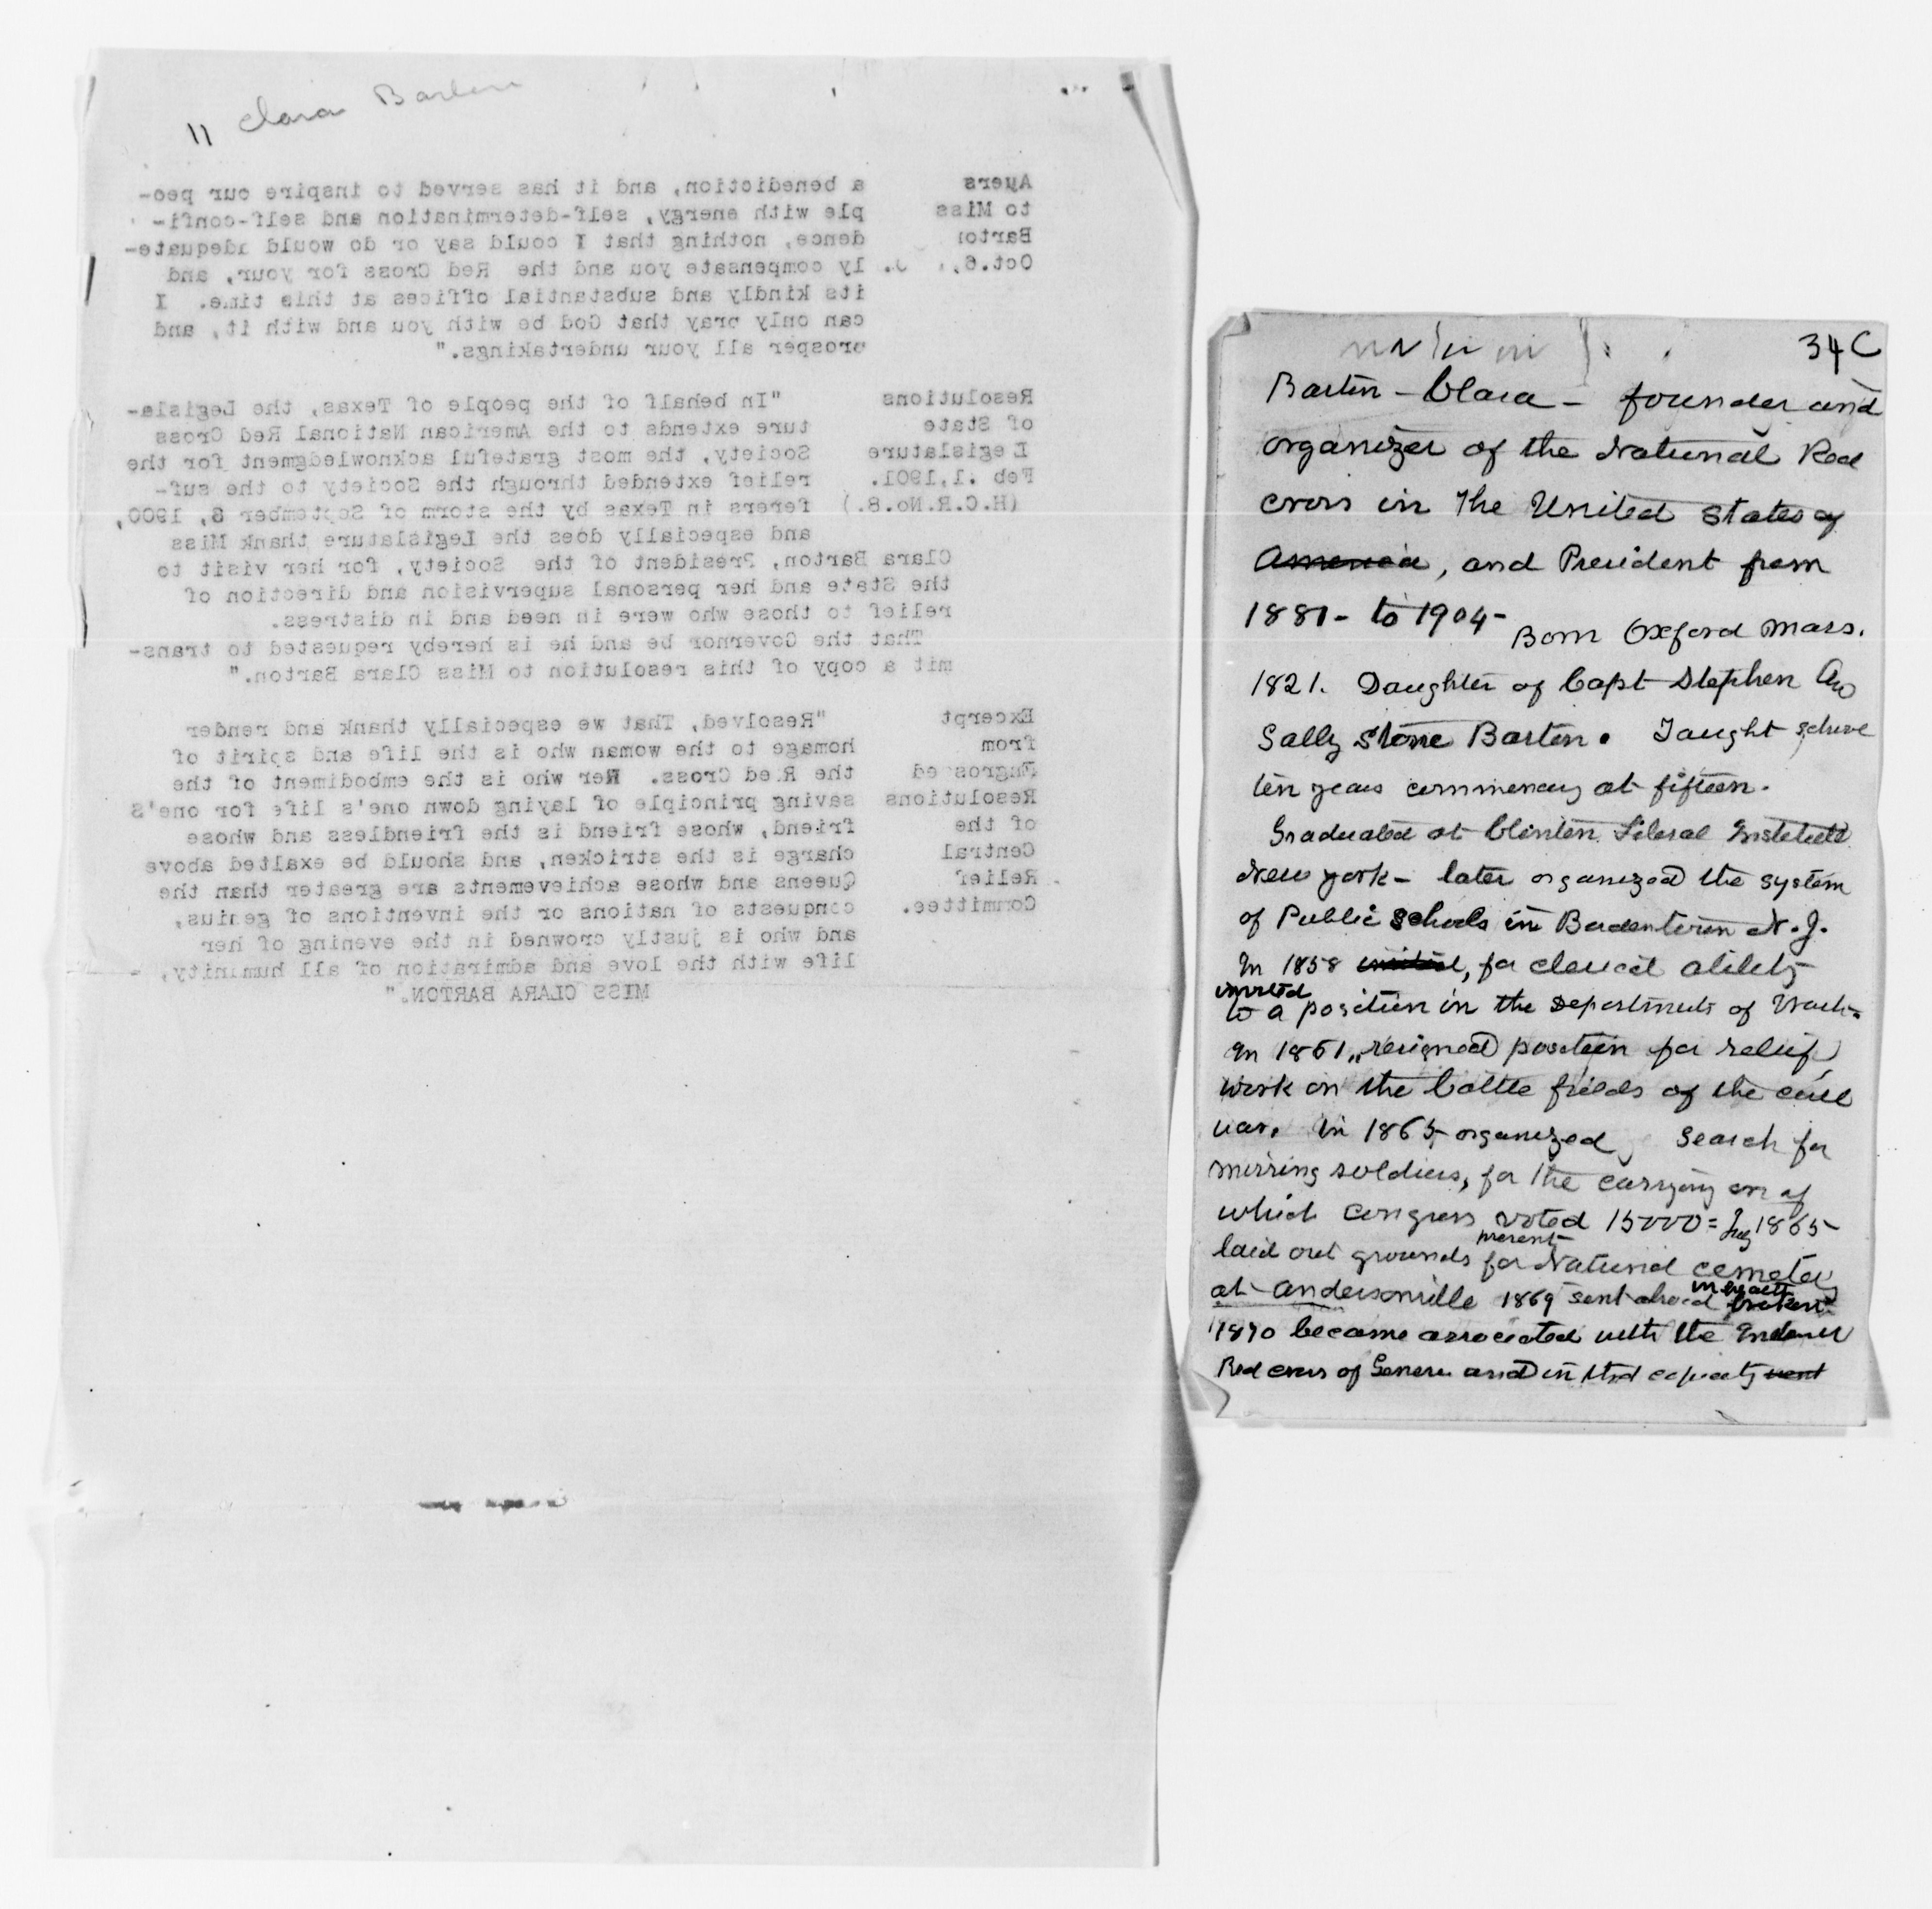 11 Clara Barton
Ayers a benediction, and it has served to inspire our peo-
to Miss ple with energy, self-determination and self-confi-
Barton dence, nothing that I could say or do would adequate-
Oct.6, ly compensate you and the Red Cross for your, and
its kindly and substantial offices at this time. I
can only pray that God be with you and with it, and
prosper all your undertakings."
Resolutions "In behalf of the people of Texas, the Legisla-
of State ture extends to the American National Red Cross
Legislature Society, the most grateful acknowledgment for the
Feb .1,1901. relief extended through the Society to the suf-
(H.C.R.No.8.) ferers in Texas by the storm of September 8, 1900,
and especially does the Legislature thank Miss
Clara Barton, President of the Society, for her visit to
the State and her personal supervision and direction of
relief to those who were in need and in distress.
That the Governor be and he is hereby requested to trans-
mit a copy of this resolution to Miss Clara Barton."
Excerpt "Resolved, That we especially thank and render
from homage to the woman who is the life and spirit of
Engrossed the Red Cross. Her who is the embodiment of the
Resolutions saving principle of laying down one's life for one's
of the friend, whose friend is the friendless and whose
Central charge is the stricken, and should be exalted above
Relief Queens and whose achievements are greater than the
Committee. conquests of nations or the inventions of genius,
and who is justly crowned in the evening of her
life with the love and admiration of all humanity, -
MISS CLARA BARTON."
34 C
Barton - Clara - founder and
organizer of the National Red
cross in the United States of
America, and President from
1881 - to 1904 -
Born Oxford Mass.
1821. Daughter of Capt Stephen and
Sally Stone Barton. Taught school
ten years commencing at fifteen.
Graduated at Clinton Liberal Institute
New York - later organized the system
of Public Schools in Bordentown N.J.
In 1858 , for clerical ability
invited
to a position in the Departments of Wash-
In 1861, resigned position for relief
work on the battle fields of the civil
war. In 1865 organized search for
missing soldiers, for the carrying on of
which Congress voted 15000 = 1865-
present
laid out grounds for National cemetery
at Andersonville 1869 sent abroad
1870 became associated with the
Red cross of Geneva and in that capacity went